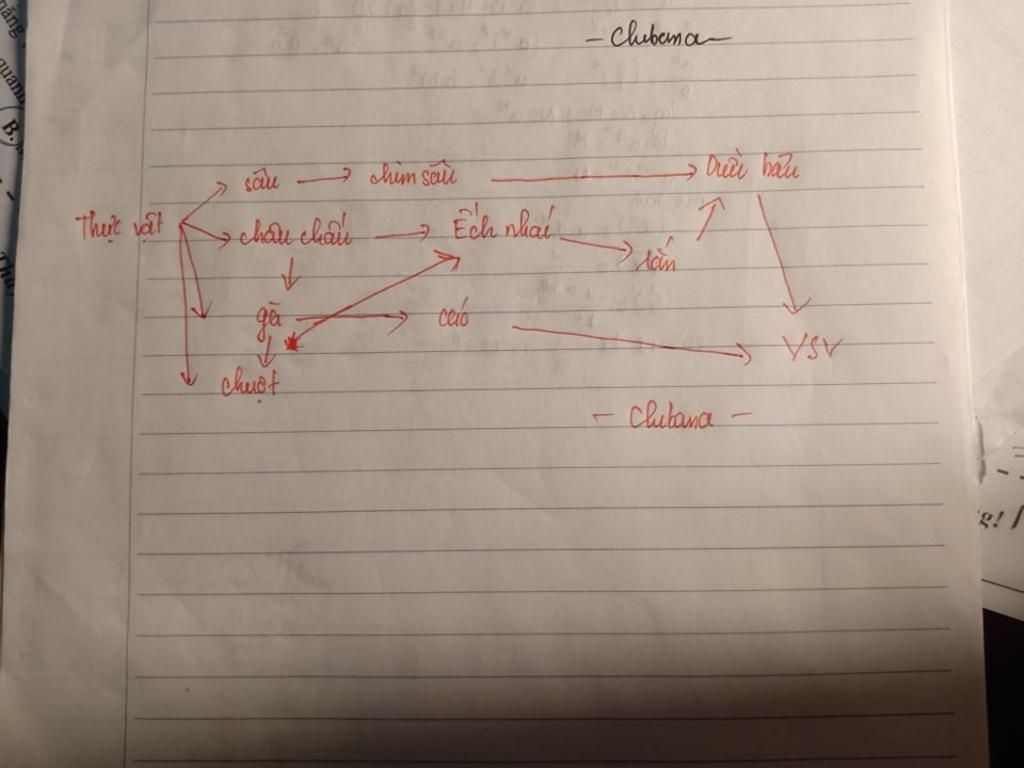 - Chubana -
sâu → chim sâu → Diều hâu
Thực vật
châu chấu → Ếch nhái → rắn
gà → cáo → VSV
chuột
- Chubana -